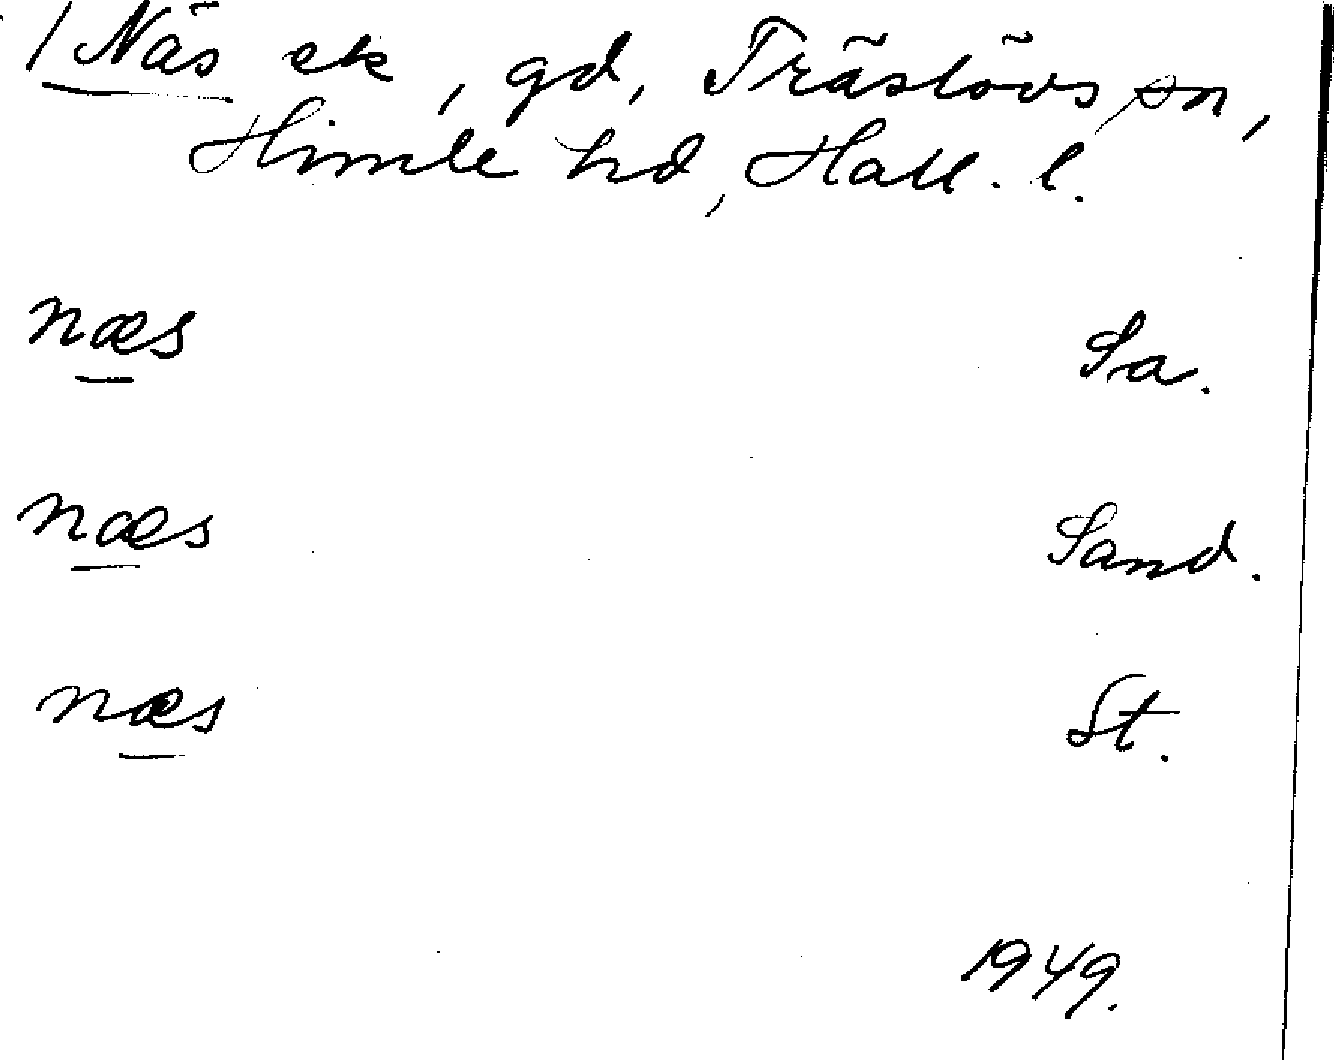 / Näs ek, gd, Träslövs sn,
Himle hd, Hall. l.
næs Sa.
næs Sand.
næs St.
1949.